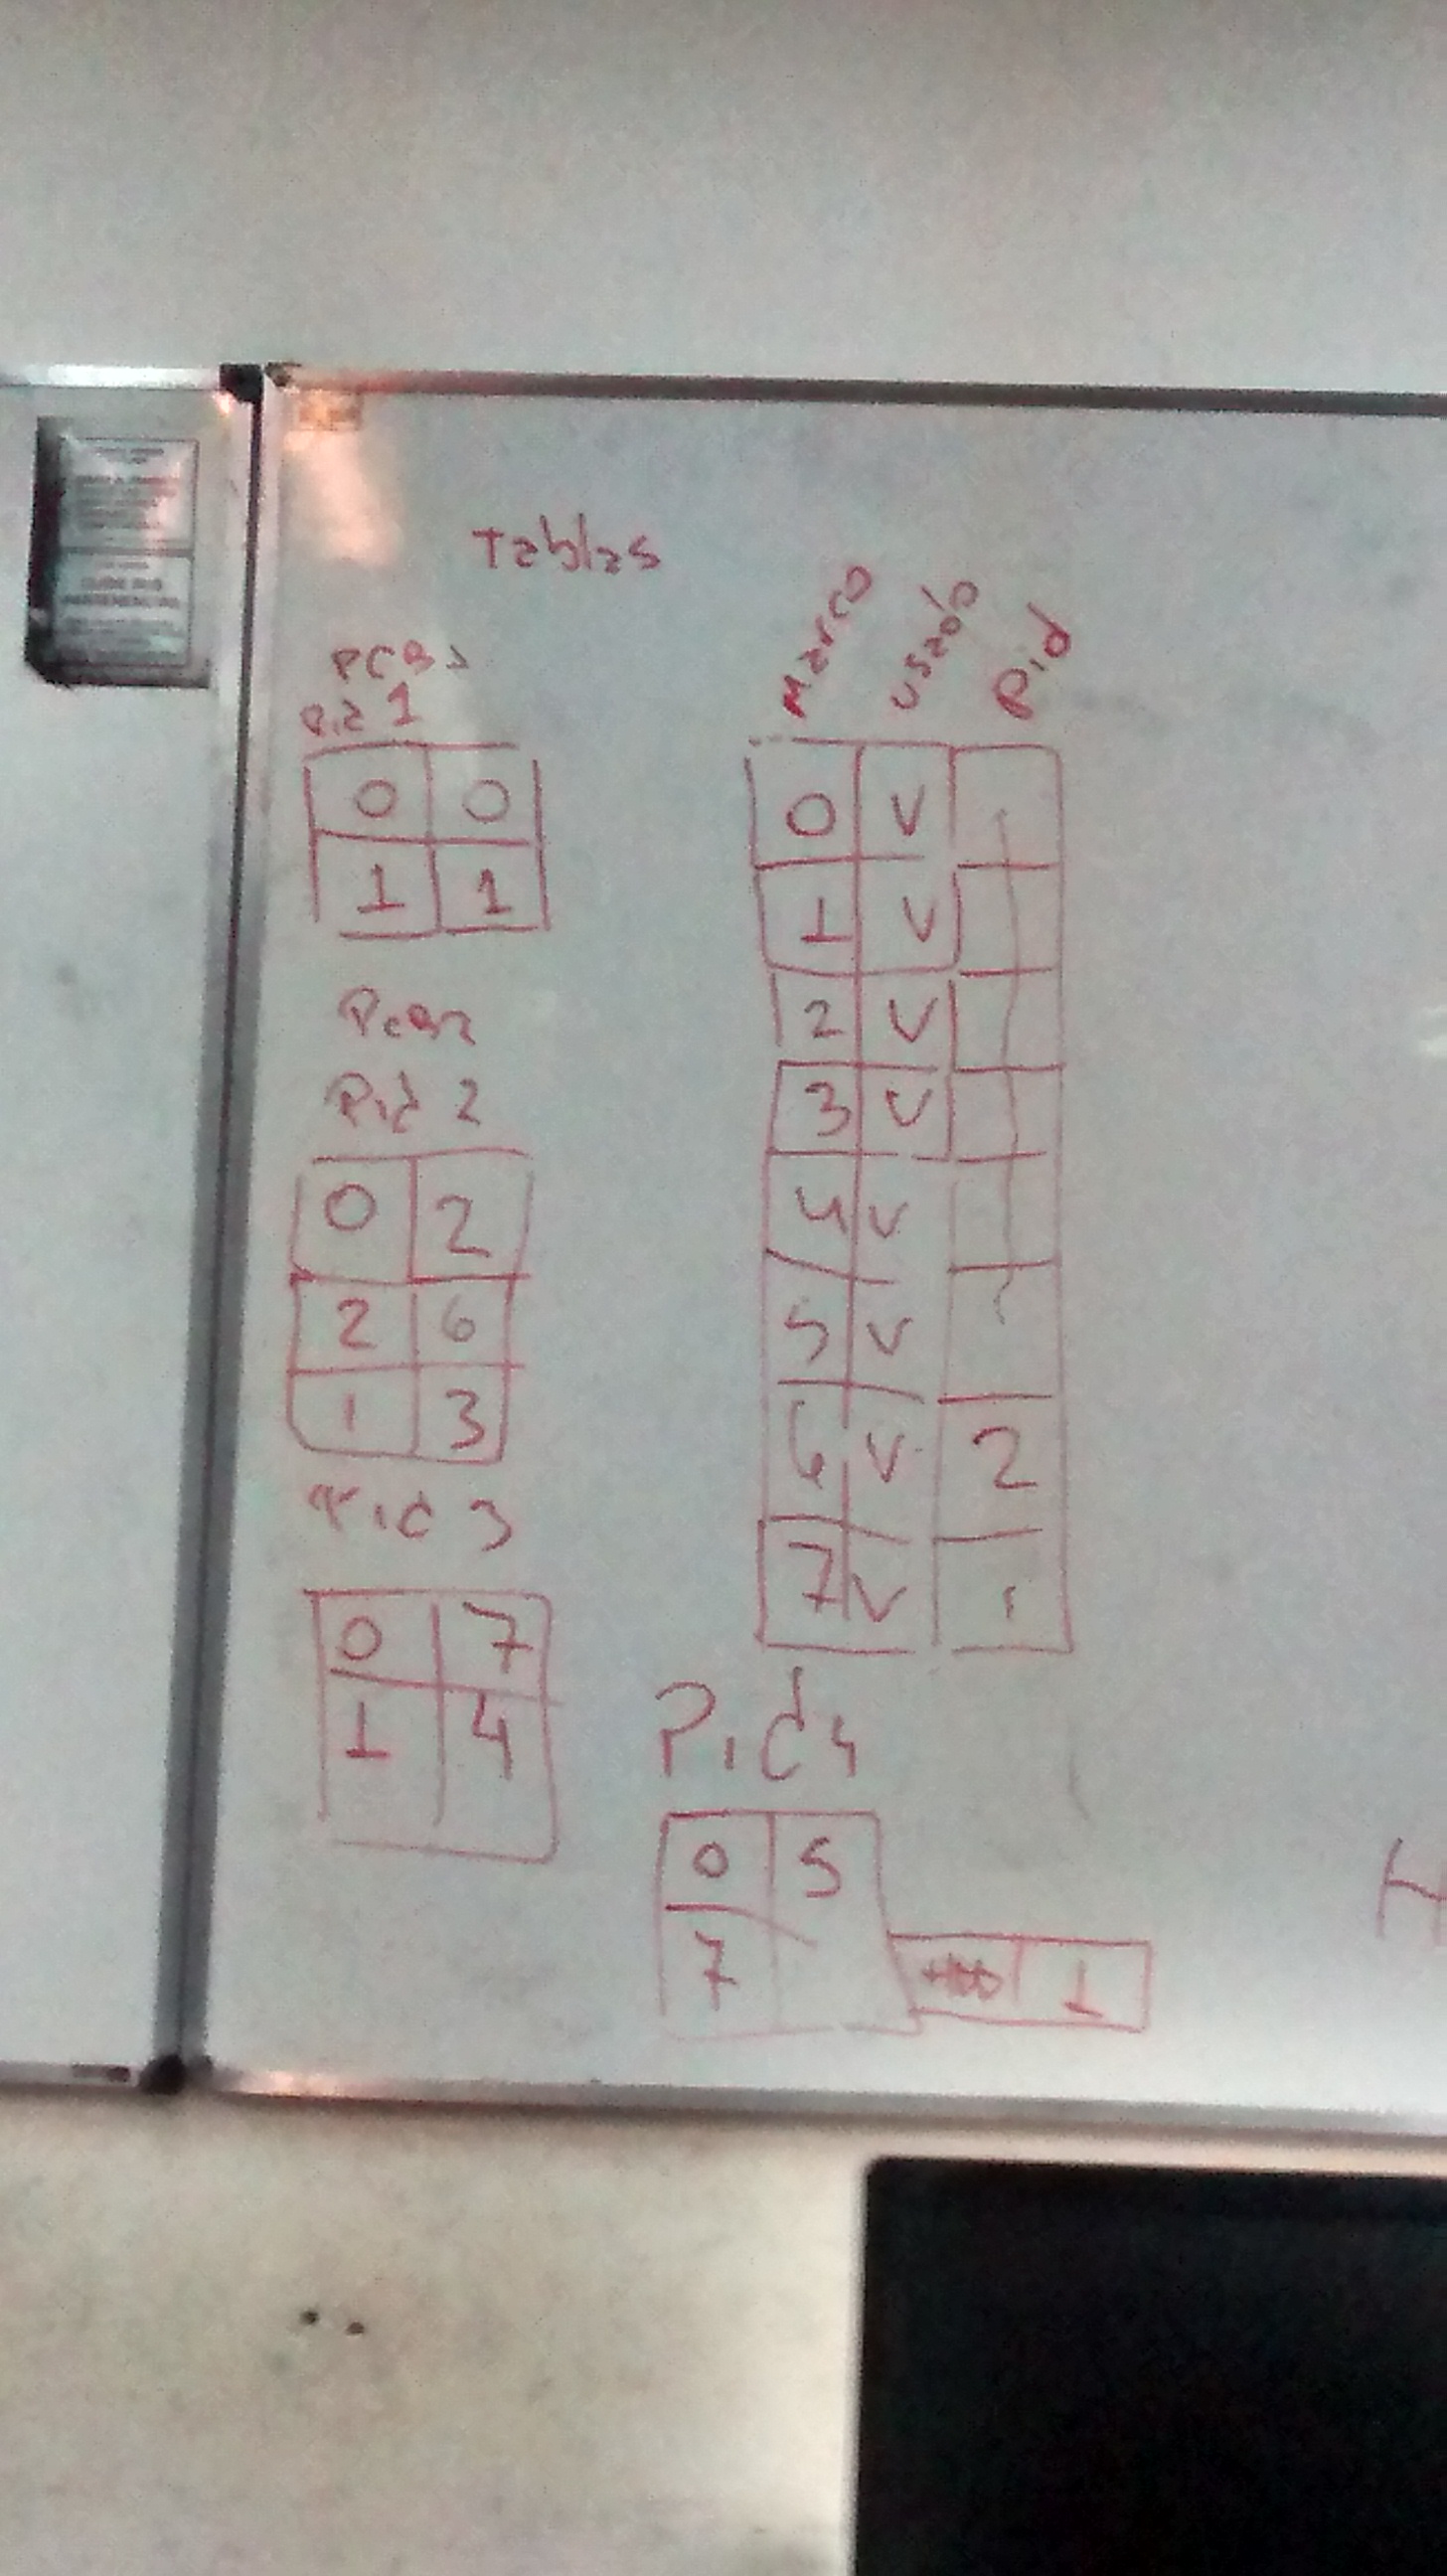 Tablas
PCB1
Pid 1
0 0
1 1
PCB2
Pid 2
0 2
2 6
1 3
Pid 3
0 7
1 4
Marco usado Pid
0 V
1 V
2 V
3 V
4 V
5 V
6 V 2
7 V 1
Pid 4
0 5
7
HDD 1
H